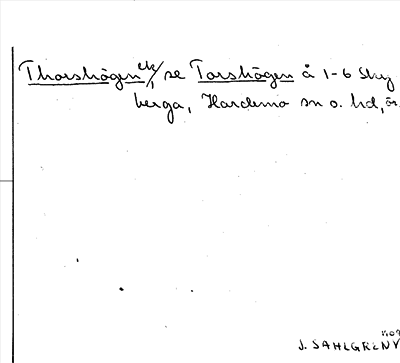 Thorshögen ek/, se Torshögen å 1-6 Sky
berga, Hardemo sn o. hd, ör.
J. SAHLGREN